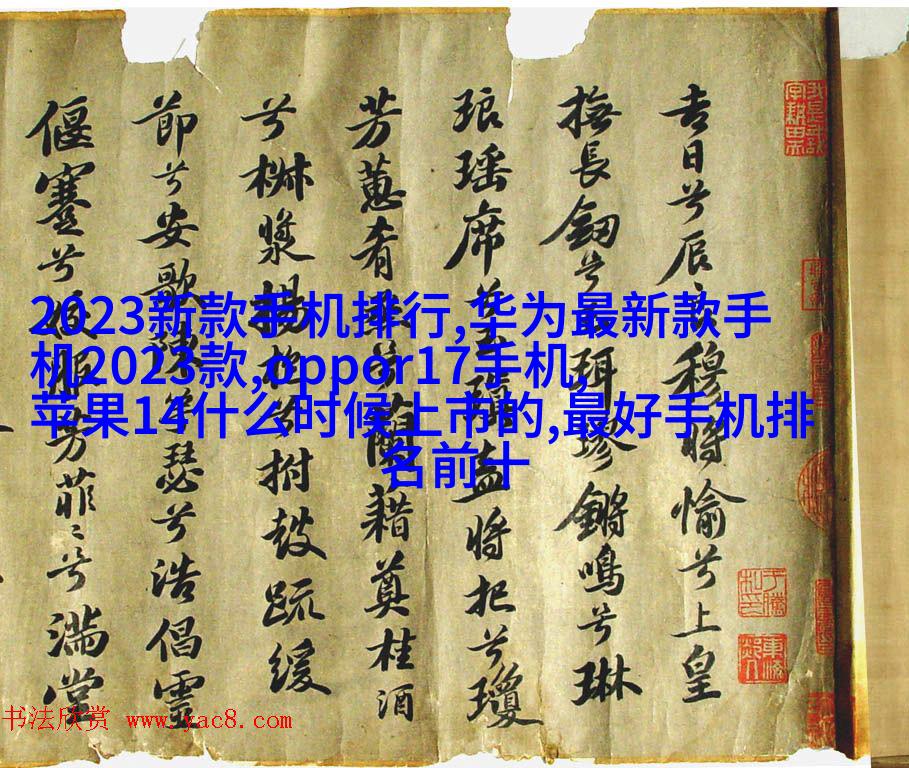 吉日兮辰良穆將愉兮上皇
撫長釰兮玉珥璆鏘鳴兮琳
琅瑤席兮玉瑱盍將把兮瓊
芳蕙肴蒸兮蘭藉奠桂酒
兮椒漿揚枹兮拊鼓疏緩
節兮安歌陳竽瑟兮浩倡靈
偃蹇兮姣服芳菲〻兮滿堂
2023新款手机排行,华为最新款手
机2023款,oppor17手机,
苹果14什么时候上市的,最好手机排
名前十
书法欣赏 www.yac8.com